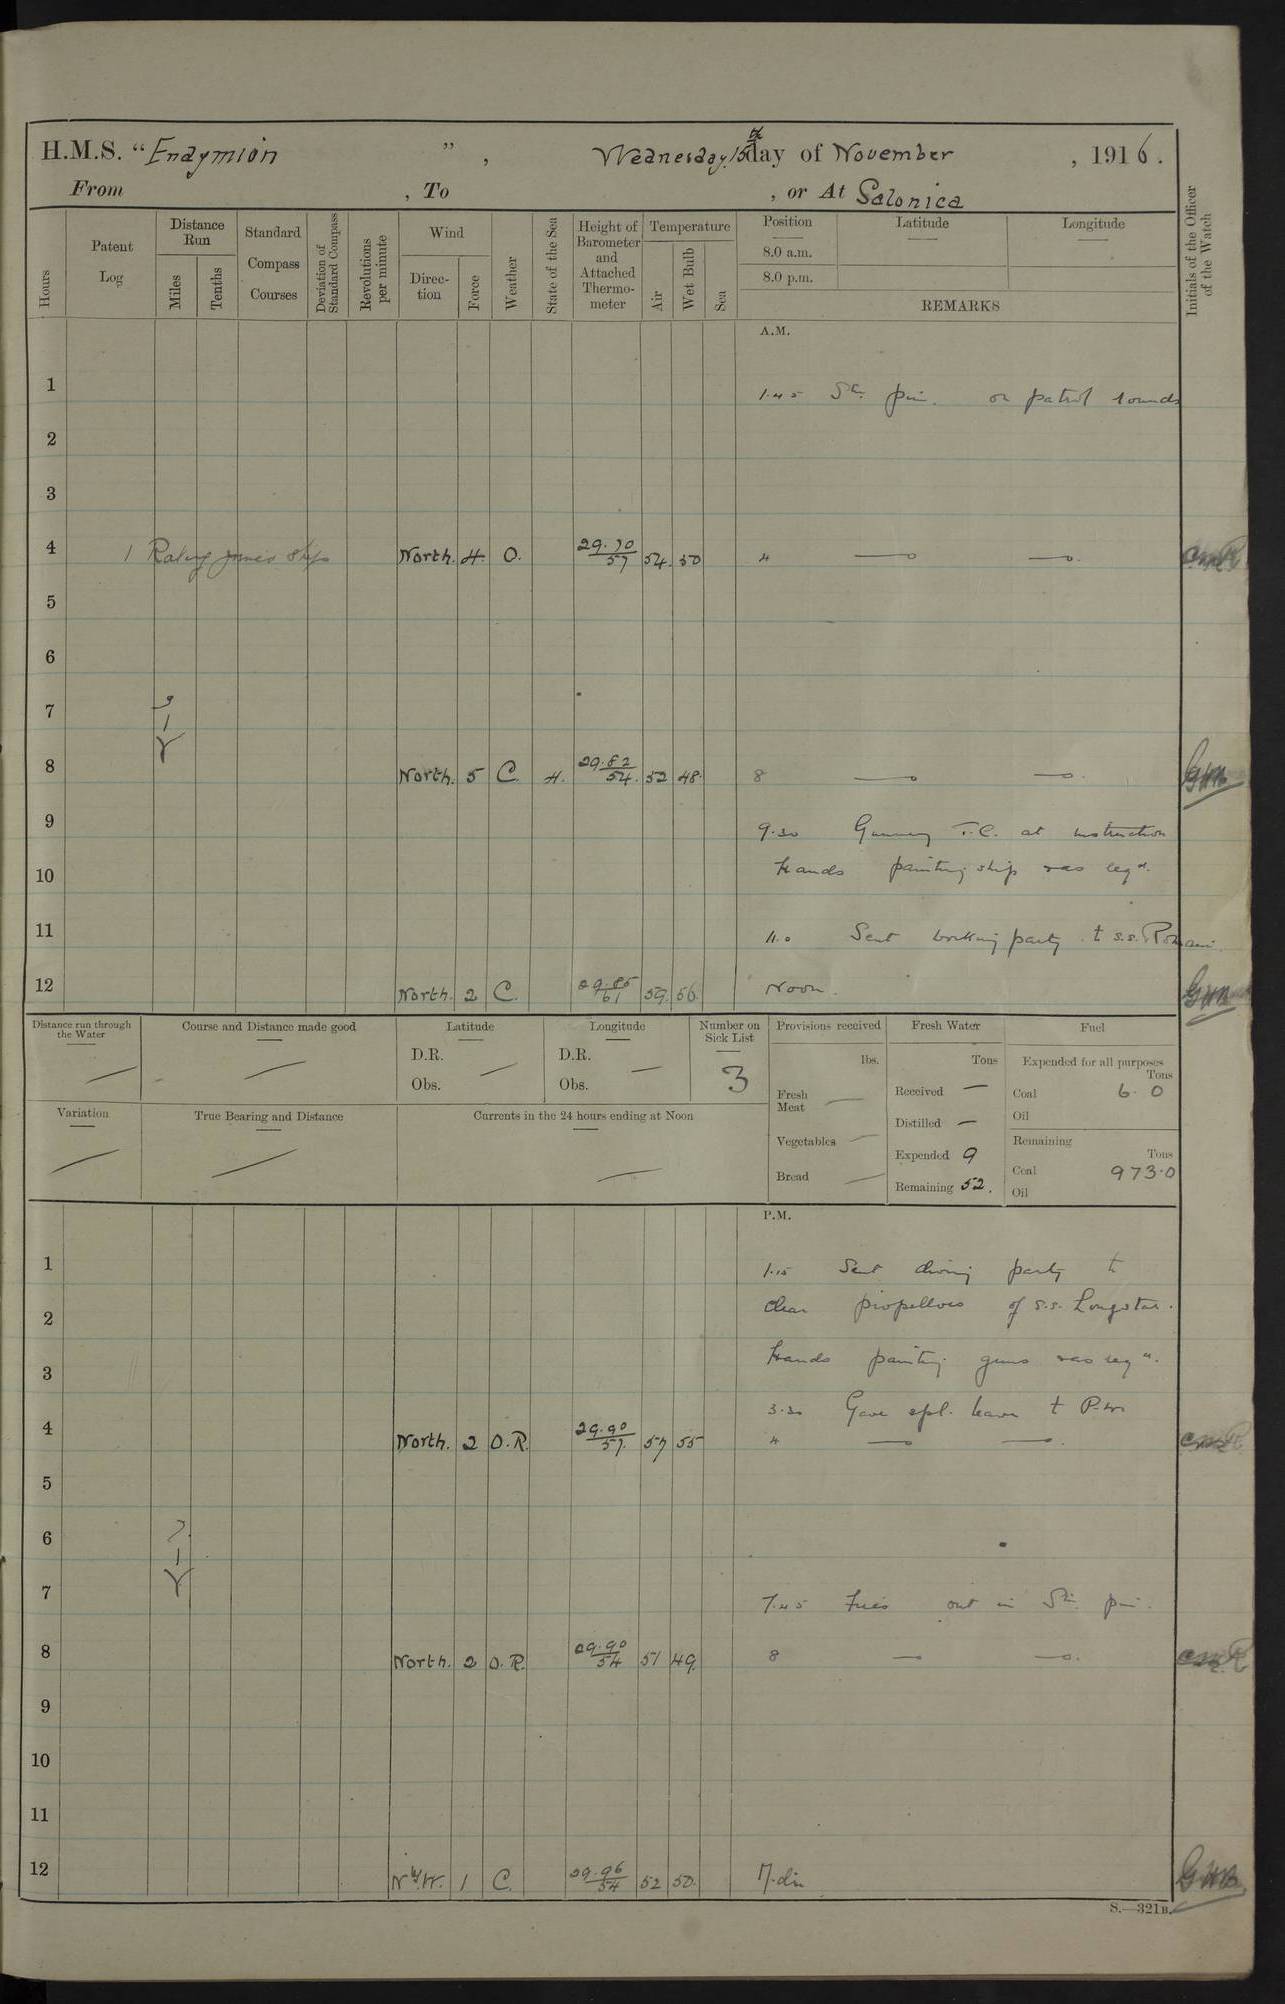 H.M.S. “Endymion ” , Wednesday 15th day of November , 1916.
From , To , or At Salonica
Hours
Patent Log
Distance Run
Miles
Tenths
Standard Compass Courses
Deviation of Standard Compass
Revolutions per minute
Wind
Direc-tion
Force
Weather
State of the Sea
Height of Barometer and Attached Thermo-meter
Temperature
Air
Wet Bulb
Sea
Position
8.0 a.m.
8.0 p.m.
Latitude
Longitude
REMARKS
Initials of the Officer of the Watch
A.M.
1
1.45 on patrol rounds
2
3
4 1 Rating joined ship North. 4 O. 29.70/57 54. 50 4
5
6
7
8 North. 5 C. 4. 29.82/54. 52 48. 8 GHB
9
9.30 Gunnery T.C. at instruction
10 Hands painting ship & as reqd.
11
11.0 Sent working party to s.s. Romani.
12 North. 2 C. 29.85/61 59. 56. Noon. GHB
Distance run through the Water
Course and Distance made good
Latitude
D.R.
Obs.
Longitude
D.R.
Obs.
Number on Sick List
3
Provisions received
lbs.
Fresh Meat
Vegetables
Bread
Fresh Water
Tons
Received
Distilled
Expended 9
Remaining 52.
Fuel
Expended for all purposes
Tons
Coal 6.0
Oil
Remaining
Tons
Coal 973.0
Oil
Variation
True Bearing and Distance
Currents in the 24 hours ending at Noon
P.M.
1 1.15 Sent diving party to
2 clear propellors of s.s. Longstar.
3 Hands painting guns & as reqd.
3.30 Gave spl. leave to
4 North. 2 O.R. 29.90/57. 57 55 4
5
6
7
7.45 Fires out in
8 North. 2 O.R. 29.90/54 51 49. 8
9
10
11
12 N by W. 1 C. 29.96/54 52 50. M.dn. GHB
S.—321B.